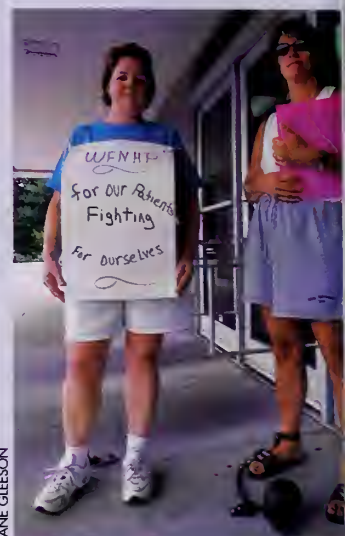 WFNHP
for our Patients
Fighting
For ourselves
ANE GLEESON